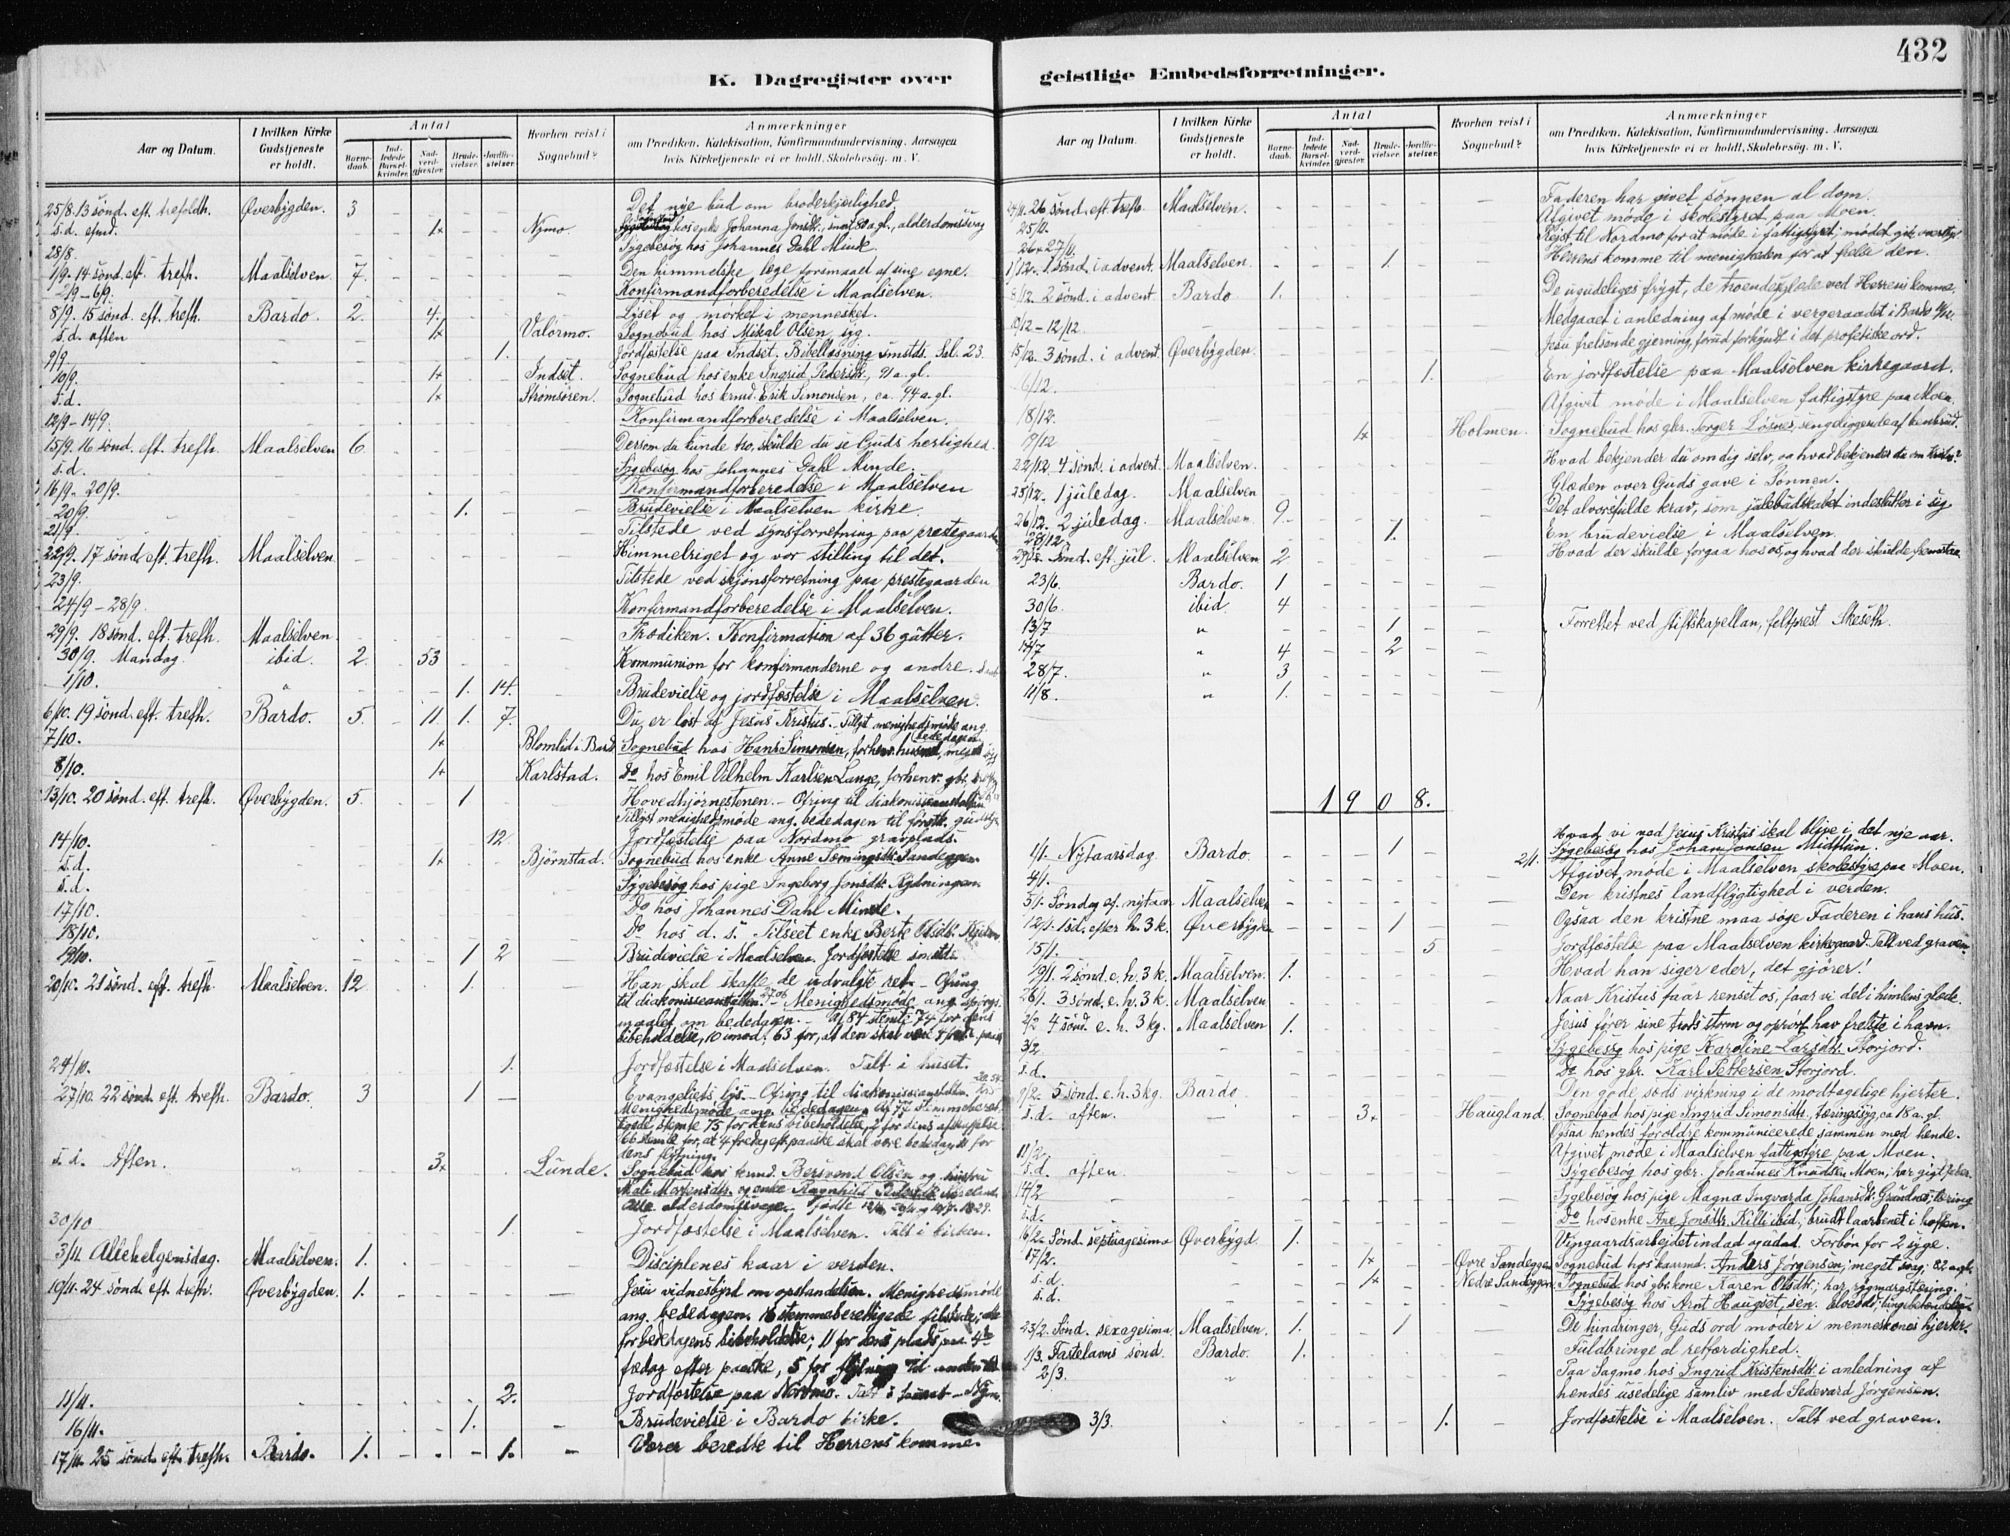 432
K. Dagregister over geistlige Embedsforretninger.
Aar og Datum.
I hvilken Kirke Gudstjeneste er holdt.
Antal
Barnedaab.
Indledede Barselkvinder.
Nadverdgjæster.
Brudevielser.
Jordfæstelser.
Hvorhen reist i Sognebud?
Anmærkninger
om Prædiken, Katekisation, Konfirmandundervisning. Aarsagen
hvis Kirketjeneste ei er holdt. Skolebesøg. m. V.
25/8. 13 sønd. eft. trefoldh. Øverbygden. 3 Det nye bud om broderkjerlighed.
s.d. efmd. 1+ Nymo. hos enke Johanna alderdomssvag
28/8. Sygebesøg hos Johannes Dahl Minde
1/9. 14 sønd. eft. trefh. Maalselven 7. Den himmelske læge forsmaaet af sine egne.
2/9 - 6/9. Konfirmandforberedelse i Maalselven.
8/9. 15 sønd. eft. trefh. Bardo. 2. 4. Lyset og mørket i mennesket.
s.d. aften 1+ Valørmo. Sognebud hos Mikal Olsen, syg.
9/9 1. Jordfæstelse paa Indset. Bibellæsning smstds. Sal. 23.
10/9. 1+ Indset. Sognebud hos enke Ingrid Pedersdt., 91 a. gl.
s.d. 1+ Strømsøren. Sognebud hos Erik Simonsen, ca. 94 a. gl.
12/9 - 14/9. Konfirmandforberedelse i Maalselven.
15/9. 16 sønd. eft. trefh. Maalselven 6. Dersom du kunde tro, skulde du se Guds herlighed.
s.d. Sygebesøg hos Johannes Dahl Minde.
16/9 - 20/9. Konfirmandforberedelse i Maalselven
20/9. 1. Brudevielse i Maalselven kirke.
21/9. Tilstede ved synsforretning paa prestegaarden
22/9. 17 sønd. eft. trefh. Maalselven Himmelriget og vor stilling til det.
23/9. Tilstede ved skjønsforretning paa prestegaarden
24/9 - 28/9. Konfirmandforberedelse i Maalselven.
29/9. 18 sønd. eft. trefh. Maalselven Prædiken. Konfirmation af 36 gutter.
30/9. Mandag. ibid. 2. 53 Kommunion for konfirmanderne og andre.
1/10. 1. 14. Brudevielse og jordfæstelse i Maalselven.
6/10. 19 sønd. eft. trefh. Bardo. 5. 11. 1. 7. Du er løst af Jesus Kristus. Tillyst menighedsmøde ang. bededagen
7/10. 1+ Blomlid i Bard. Sognebud hos Hans Simonsen, forhenv.
8/10. 1+ Karlstad. Do hos Emil Vilhelm Karlsen Lange, forhenv. gbr.
13/10. 20 sønd. eft. trefh. Øverbygden. 5. 1 Hovedhjørnestenen. - Ofring til diakonisseanstalten
Tillyst menighedsmøde ang. bededagen til førstk. gudstj.
14/10. 12. Jordfæstelse paa Nordmo gravplads.
s.d. 1+ Bjørnstad. Sognebud hos enke Anne Sandeggen.
s.d. Sygebesøg hos pige Ingeborg Jonsdt. Rydningen.
17/10. Do hos Johannes Dahl Minde.
18/10. Do hos d. s. - Tilseet enke Berte Olsdt.
19/10. 1 2 Brudevielse i Maalselven. Jordfæstelse smstds.
20/10. 21 sønd. eft. trefh. Maalselven. 12 1. Han skal skaffe de udvalgte ret. - Ofring
til diakonisseanstalten. - Menighedsmøde ang. spørgsmaalet om bededagen. Af 84 stemte 74 for dens
bibeholdelse, 10 imod. 63 for, at den skal være
24/10. 1. Jordfæstelse i Maalselven. Talt i huset.
27/10. 22 sønd. eft. trefh. Bardo. 3 1 Evangeliets lys. - Ofring til diakonisseanstalten.
Menighedsmøde ang. bededagen. Af 77 stemmeberettigede, stemte 75 for dens bibeholdelse, 2 for dens afskaffelse.
66 stemte for, at 4 fredag eft. paaske skal være bededag,
dens flytning.
s.d. Aften. 3+ Lunde. Sognebud hos Bersvend Olsen og hustru
Mali Mortensdt. og enke Ragnhild
Alle alderdomssvage, fødte
30/10 1. Jordfæstelse i Maalselven. Talt i kirken.
3/11. Allehelgensdag. Maalselven. 1. Disciplenes kaar i verden.
10/11. 24 sønd. eft. trefh. Øverbygden. 1. Jesu vidnesbyrd om opstandelsen. Menighedsmøde
ang. bededagen. 16 stemmeberettigede tilstede; alle
for bededagens bibeholdelse; 11 for dens plads paa 4de
fredag efter paaske, 5 for flytning til anden
11/11. 2. Jordfæstelse paa Nordmo. Talt i
16/11. 1. Brudevielse i Bardo kirke.
17/11. 25 sønd. eft. trefh. Bardo. 1. 1. Værer beredte til Herrens komme.
Aar og Datum.
I hvilken Kirke Gudstjeneste er holdt.
Antal
Barnedaab.
Indledede Barselkvinder.
Nadverdgjæster.
Brudevielser.
Jordfæstelser.
Hvorhen reist i Sognebud?
Anmærkninger
om Prædiken, Katekisation, Konfirmandundervisning. Aarsagen
hvis Kirketjeneste ei er holdt. Skolebesøg. m. V.
24/11. 26 sønd. eft. trefh. Maalselven. Faderen har givet sønnen al dom.
25/11. Afgivet møde i skolestyret paa Moen.
26 & 27/11. Rejst til Nordmo for at møde i fattigstyret; mødet gik overstyr
1/12. 1. sønd. i advent. Maalselven. 1. Herrens komme til menigheden for at frelse den.
8/12. 2 sønd. i advent. Bardo. 1. De ugudeliges frygt, de troendes glæde ved Herrens komme.
10/12 - 12/12. Medgaaet i anledning af møde i vergeraadet i Bardo 11/12.
15/12. 3 sønd. i advent. Øverbygden. Jesu frelsende gjerning, forud forkyndt i det profetiske ord.
6/12. 1. En jordfæstelse paa Maalselven kirkegaard.
18/12. Afgivet møde i Maalselven fattigstyre paa Moen.
19/12 1+ Holmen. Sognebud hos gbr. Torger Løsnes, sengeliggende af benbrud.
22/12. 4 sønd. i advent. Maalselven. Hvad bekjender du om dig selv, og hvad bekjender du om Kristus?
25/12. 1 juledag. Maalselven Glæden over Guds gave i Sønnen.
26/12. 2 juledag. Maalselven 9. Det alvorsfulde krav, som julebudskabet indeslutter i sig
28/12. 1. En brudevielse i Maalselven.
29/12. Sønd. eft. jul. Maalselven 2 Hvad der skulde forgaa hos os, og hvad der skulde fremstaa
23/6. Bardo. 1
30/6. ibid. 4
13/7 " 1 Forrettet ved stiftskapellan, feltprest Skeseth.
14/7 " 4 2
28/7. " 3
11/8. " 1.
1908.
1/1. Nytaarsdag. Bardo. 1 Hvad vi ved Jesus Kristus skal blive i det nye aar.
2/1. Sygebesøg hos Johan Jonsen Midttun.
4/1. Afgivet møde i Maalselven skolestyre paa Moen.
5/1. Søndag ef. nytaar Maalselven Den kristnes landflygtighed i verden.
12/1. 1 sd. efter h. 3 k. Øverbygden 1 Ogsaa den kristne maa søge Faderen i hans hus.
15/1. 5 Jordfæstelse paa Maalselven kirkegaard. Talt ved graven.
19/1. 2 sønd. e. h. 3 k. Maalselven. 1. Hvad han siger eder, det gjører!
26/1. 3 sønd. e. h. 3 k. Maalselven. Naar Kristus faar renset os, faar vi del i himlens glæde.
2/2 4 sønd. e. h. 3 kg. Maalselven 1. Jesus fører sine trods storm og oprørt hav frelste i havn.
3/2. Sygebesøg hos pige Karoline Larsdt. Storjord.
s.d. Do hos gbr. Karl Pettersen Storjord.
9/2. 5 sønd. e. h. 3 kg. Bardo Den gode sæds virkning i de modtagelige hjerter.
s.d. aften. 3+ Haugland. Sognebud hos pige Ingrid Simonsdt., tæringssyg, ca 18 a. gl.
Ogsaa hendes forældre kommunicerede sammen med hende.
11/2. Afgivet møde i Maalselven fattigstyre paa Moen.
s.d. aften. Sygebesøg hos gbr. Johannes Knudsen Moen; har gigtfeber.
14/2 Sygebesøg hos pige Magna Ingvarda Johansdt. Grundnes; tæring
s.d. Do hos enke Ane Jonsdt. Killi ibid; brudt laarbenet i hoften.
16/2. Sønd. septuagesima Øverbygd. 1. Vingaardsarbeidet indad og adad. Forbøn for 2 syge.
17/2. 1+ Øvre Sandeggen Sognebud hos kaarmd. Anders Jørgensen; meget svag; 82 a. gl.
s.d. 1+ Nedre Sandeggen. Sognebud hos gbr.kone Karen Olsdt.; har rygmargstæring.
s.d. Sygebesøg hos Arnt Haugset, sen.
23/2. Sønd. sexagesima Maalselven. 1. 1 De hindringer, Guds ord møder i menneskenes hjerter.
1/3. Fastelavns sønd. Bardo. 1. Fuldbringe al retfærdighed.
2/3. Paa Sagmo hos Ingrid Kristensdt. i anledning af
hendes usedelige samliv med Sedevard Jørgensen.
3/3. 1. Jordfæstelse i Maalselven. Talt ved graven.